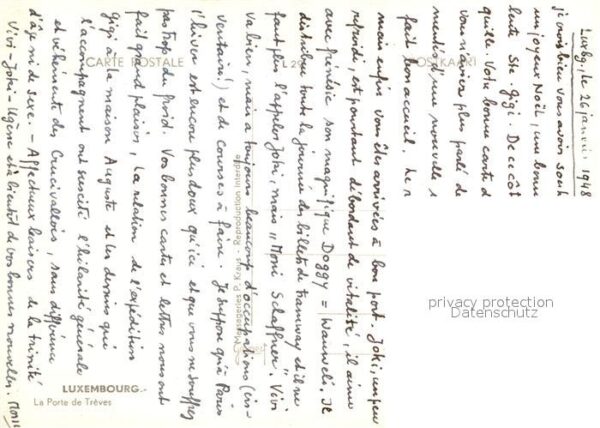 Luxbg, le 26 janvier 1948
je vois bien vous avoir souh
un joyeux Noël, une bonn
lente Ste Gigi. De ce côt
quille. Votre bonne carte d
vous n'aviez plus parlé de
mentis d'une nouvelle s
fait bon accueil. Le r
mais enfin vous êtes arrivées à bon port. Joki, un peu
refroidi est pourtant débordant de vitalité, il aime
avec frénésie son magnifique Doggy = Wauweli. Il
distribue toute la journée des billets de tramway et il ne
faut plus l'appeler Joki, mais "Moni Schaffner". Vivi
va bien, mais a toujours beaucoup d'occupations (in-
ventaire!) et de courses à faire. Je suppose qu'à Paris
l'hiver est encore plus doux qu'ici et que vous ne souffrez
pas trop du froid. Vos bonnes cartes et lettres nous ont
fait grand plaisir, la relation de l'expédition
Gigi à la maison Auguste et les dessins qui
l'accompagnent ont suscité l'hilarité générale
et véhémente des Crucivallois, sans différence
d'âge ni de sexe. - Affectueux baisers de la trinité
Vivi - Joki - Ugène et à bientôt de vos bonnes nouvelles.
CARTE POSTALE
POSTKAARI
L 29
Messageries P. Kraus - Reproduction interdite
LUXEMBOURG.-
La Porte de Trèves
privacy protection
Datenschutz